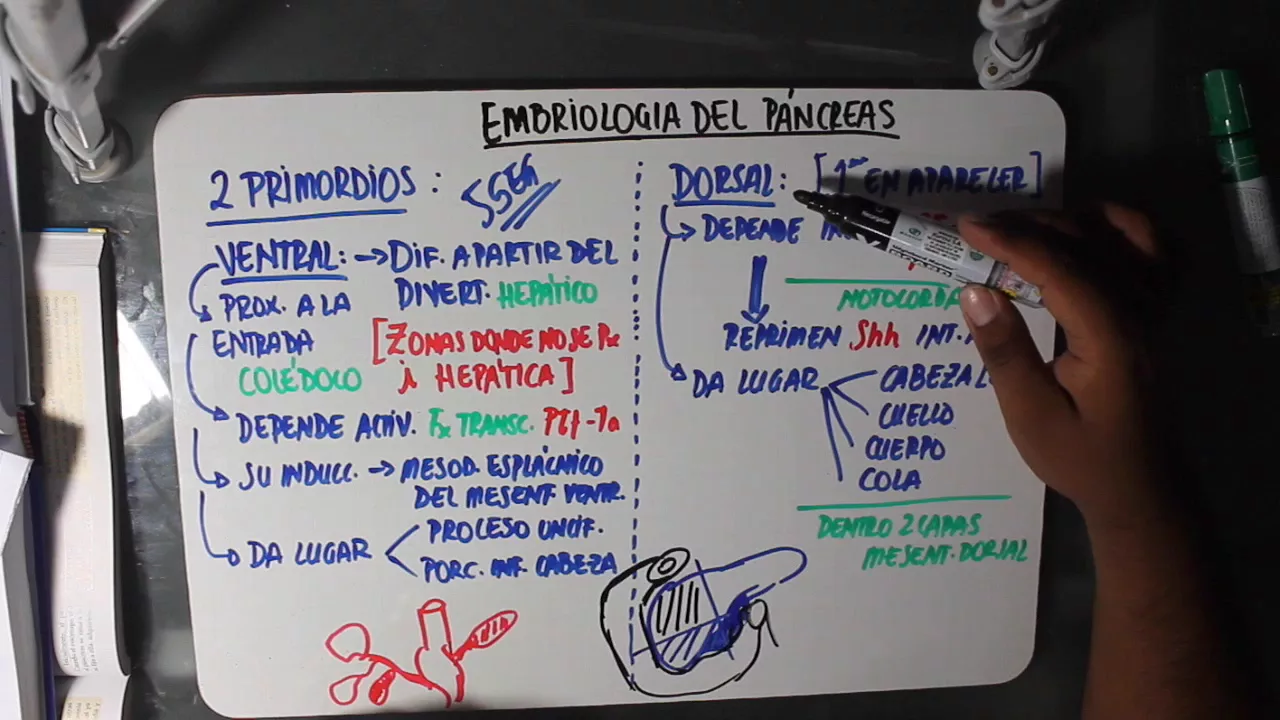 EMBRIOLOGIA DEL PÁNCREAS
2 PRIMORDIOS :
VENTRAL: → DIF. A PARTIR DEL
DIVERT. HEPÁTICO
PROX. A LA
ENTRADA
COLÉDOCO
[ZONAS DONDE NO SE
HEPÁTICA]
DEPENDE ACTIV. TRANSC. Ptf-1a
SU INDUCC. → MESOD. ESPLÁCNICO
DEL MESENT. VENTR.
DA LUGAR
PROCESO UNCIF.
PORC. INF. CABEZA
DORSAL: [1º EN APARELER]
DEPENDE
NOTOCORDA
REPRIMEN Shh INT.
DA LUGAR
CABEZA
CUELLO
CUERPO
COLA
DENTRO 2 CAPAS
MESENT. DORSAL